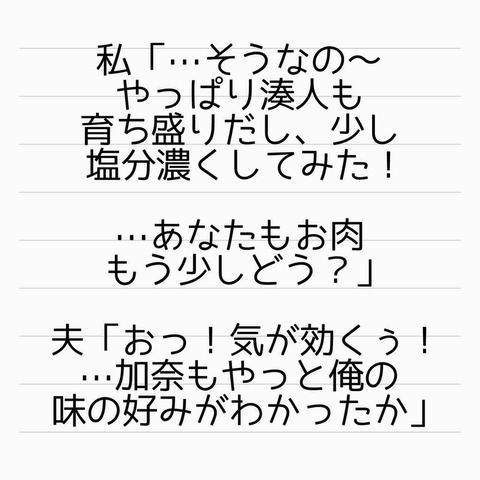 私「…そうなの〜
やっぱり湊人も
育ち盛りだし、少し
塩分濃くしてみた！
…あなたもお肉
もう少しどう？」
夫「おっ！気が効くぅ！
…加奈もやっと俺の
味の好みがわかったか」